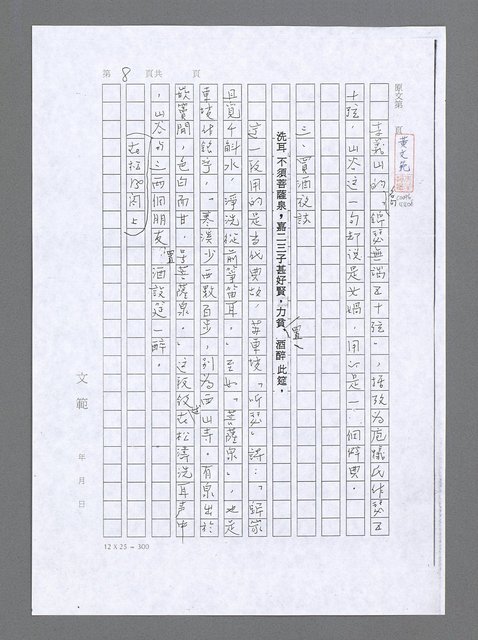 第 8 頁共 頁
原文第 頁
黃文範
李義山的句「錦瑟無端五十弦」，據改為庖犧氏作瑟五
十弦，山谷這一句卻說是女媧，用的是一個僻典。
三、買酒夜話
洗耳不須菩薩泉，嘉二三子甚好賢，力貧買酒醉此筵，
這一段用的是當代典故，蘇東坡「听瑟」詩：「歸家
且覓千斛水，淨洗從前箏笛耳」。至如「菩薩泉」，也是
東坡作銘序，「寒溪少西數百步，別為西山寺，有泉出於
嵌竇間，色白而甘，号菩薩泉。」這段從在松濤洗耳声中
，山谷与三兩個朋友置酒設筵一醉。
文範 年 月 日
12 X 25 = 300